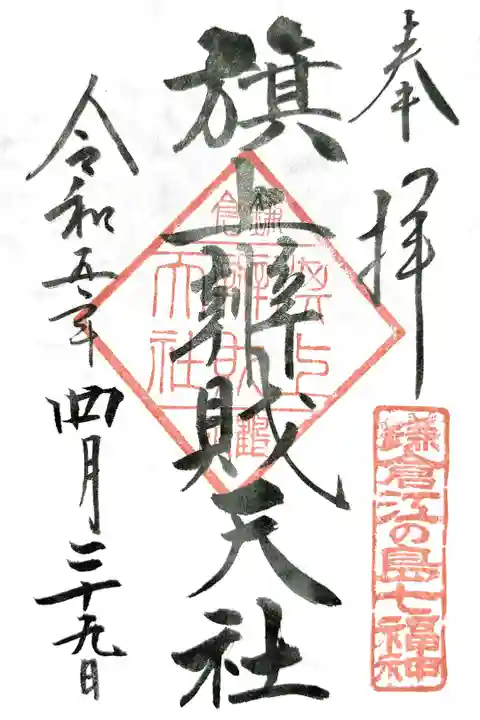 奉拝
鎌倉江の島七福神
旗上辨財天社
令和五年四月二十九日